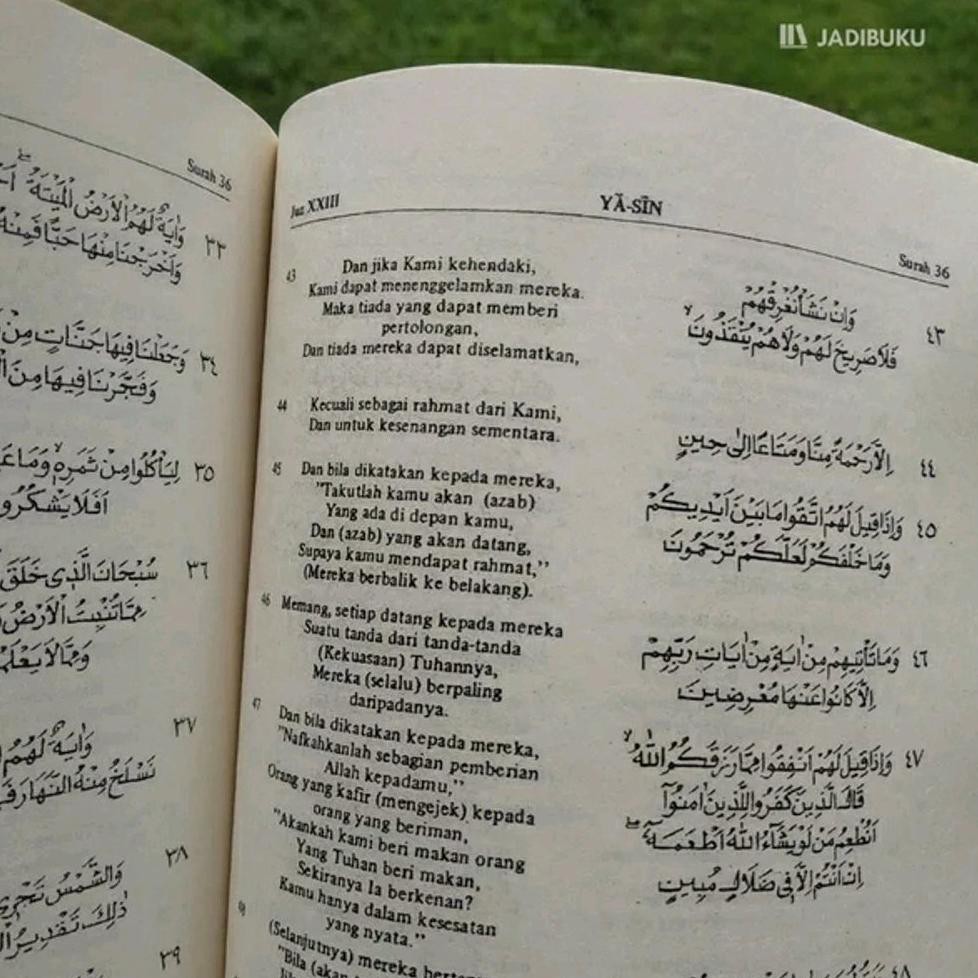 JADIBUKU
Surah 36
٣٣ وَاٰيَةٌ لَهُمُ الْاَرْضُ الْمَيْتَةُ
وَاَخْرَجْنَا مِنْهَا حَبًّا فَمِنْهُ
٣٤ وَجَعَلْنَا فِيهَا جَنَّاتٍ مِنْ
وَفَجَّرْنَا فِيهَا مِنَ
٣٥ لِيَأْكُلُوا مِنْ ثَمَرِهِ وَمَا
اَفَلَا يَشْكُرُو
٣٦ سُبْحَانَ الَّذِى خَلَقَ
مِمَّا تُنْبِتُ الْاَرْضُ
وَمِمَّا لَا
٣٧ وَاٰيَةٌ لَهُمُ
نَسْلَخُ مِنْهُ النَّهَارَ
٣٨ وَالشَّمْسُ تَجْرِى
ذٰلِكَ تَقْدِيرُ
٣٩
Juz XXIII
YĀ-SĪN
Surah 36
43 Dan jika Kami kehendaki,
Kami dapat menenggelamkan mereka.
Maka tiada yang dapat memberi
pertolongan,
Dan tiada mereka dapat diselamatkan,
44 Kecuali sebagai rahmat dari Kami,
Dan untuk kesenangan sementara.
45 Dan bila dikatakan kepada mereka,
"Takutlah kamu akan (azab)
Yang ada di depan kamu,
Dan (azab) yang akan datang,
Supaya kamu mendapat rahmat,"
(Mereka berbalik ke belakang).
46 Memang, setiap datang kepada mereka
Suatu tanda dari tanda-tanda
(Kekuasaan) Tuhannya,
Mereka (selalu) berpaling
daripadanya.
47 Dan bila dikatakan kepada mereka,
"Nafkahkanlah sebagian pemberian
Allah kepadamu,"
Orang yang kafir (mengejek) kepada
orang yang beriman,
"Akankah kami beri makan orang
Yang Tuhan beri makan,
Sekiranya Ia berkenan?
Kamu hanya dalam kesesatan
yang nyata."
48 (Selanjutnya) mereka
"Bila (akan
٤٣ وَاِنْ نَشَأْ نُغْرِقْهُمْ
فَلَا صَرِيخَ لَهُمْ وَلَا هُمْ يُنْقَذُونَ
٤٤ اِلَّا رَحْمَةً مِنَّا وَمَتَاعًا اِلٰى حِينٍ
٤٥ وَاِذَا قِيلَ لَهُمُ اتَّقُوا مَا بَيْنَ اَيْدِيكُمْ
وَمَا خَلْفَكُمْ لَعَلَّكُمْ تُرْحَمُونَ
٤٦ وَمَا تَأْتِيهِمْ مِنْ اٰيَةٍ مِنْ اٰيَاتِ رَبِّهِمْ
اِلَّا كَانُوا عَنْهَا مُعْرِضِينَ
٤٧ وَاِذَا قِيلَ لَهُمْ اَنْفِقُوا مِمَّا رَزَقَكُمُ اللّٰهُ
قَالَ الَّذِينَ كَفَرُوا لِلَّذِينَ اٰمَنُوٓا
اَنُطْعِمُ مَنْ لَوْ يَشَآءُ اللّٰهُ اَطْعَمَهُ
اِنْ اَنْتُمْ اِلَّا فِى ضَلَالٍ مُبِينٍ
٤٨